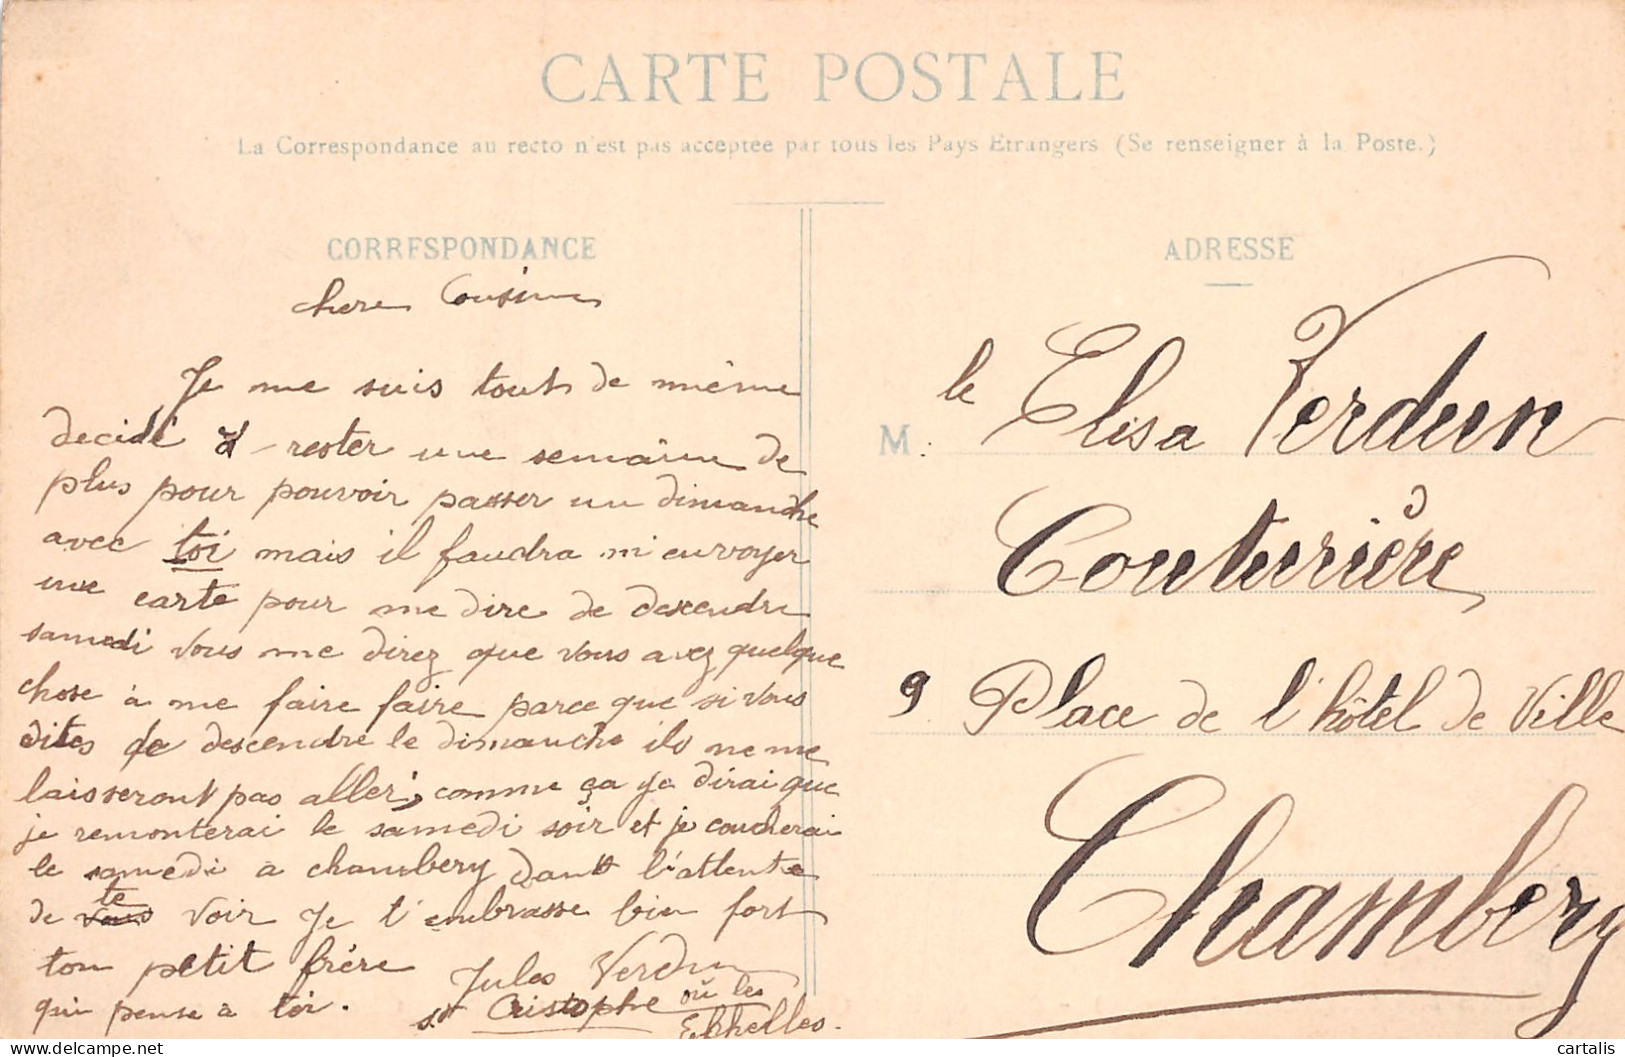 CARTE POSTALE
La Correspondance au recto n'est pas acceptée par tous les Pays Etrangers (Se renseigner à la Poste.)
CORRESPONDANCE
chere Cousine
Je me suis tout de même
decidé à rester une semaine de
plus pour pouvoir passer un dimanche
avec toi mais il faudra m'envoyer
une carte pour me dire de descendre
samedi vous me direz que vous avez quelque
chose à me faire faire parce que si vous
dites de descendre le dimanche ils ne me
laisseront pas aller, comme ça je dirai que
je remonterai le samedi soir et je coucherai
le samedi à chambery dans l'attente
de vous te voir Je t'embrasse bien fort
ton petit frère
qui pense à toi.
Jules Verdun
st Cristophe où les
Echelles.
ADRESSE
M. le Elisa Verdun
Couturière
9 Place de l'hôtel de Ville
Chambery
delcampe.net
cartalis